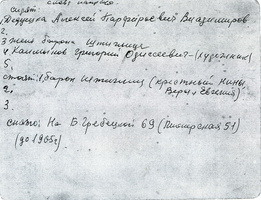 слева направо
сидят:
1 Дедушка Алексей Парфирьевич Владимиров
2.
3 жена барона Штиглица
4. Григорий Одиссеевич - (художник)
5.
стоят: 1 барон Штиглиц (крестный Нины
2. Веры и Евгения)
3.
снято: На Б Гребецкой 69 (Пионерская 51)
(до 1905г)